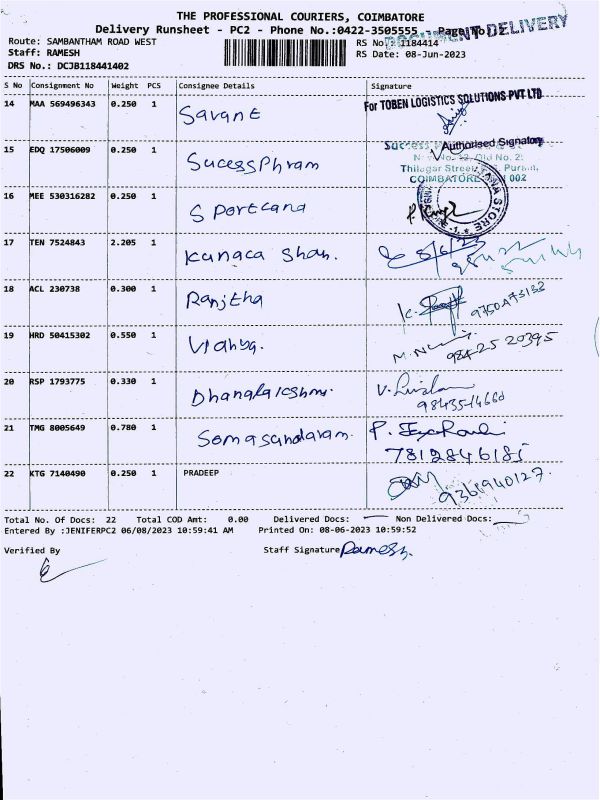 THE PROFESSIONAL COURIERS, COIMBATORE
Delivery Runsheet - PC2 - Phone No.:0422-3505555 - Page No.: 2
DOCUMENT DELIVERY
Route: SAMBANTHAM ROAD WEST RS No: 1184414
Staff: RAMESH RS Date: 08-Jun-2023
DRS No.: DCJB118441402
S No Consignment No Weight PCS Consignee Details Signature
14 MAA 569496343 0.250 1 Savant
For TOBEN LOGISTICS SOLUTIONS PVT LTD
Authorised Signatory
15 EDQ 17506009 0.250 1 SucessPhram
Success
No. 12, Old No. 2
Thilagar Street, Puram,
COIMBATORE 002
16 MEE 530316282 0.250 1 Sportcana
STORE
17 TEN 7524843 2.205 1 Kanaca Shan. 8/6/23
18 ACL 230738 0.300 1 Ranjtha
K.
19 HRD 50415302 0.550 1 Vidhya. M.N
98425 20395
20 RSP 1793775 0.330 1 Dhanalakshmi. V.
9843514660
21 TMG 8005649 0.780 1 Somasundaram. P.
7812846185
22 KTG 7140490 0.250 1 PRADEEP
9361940127.
Total No. Of Docs: 22 Total COD Amt: 0.00 Delivered Docs: Non Delivered Docs:
Entered By :JENIFERPC2 06/08/2023 10:59:41 AM Printed On: 08-06-2023 10:59:52
Verified By Staff Signature Ramesh.